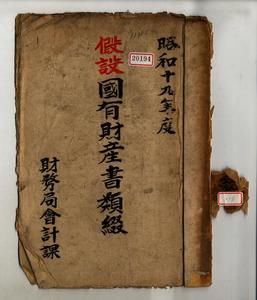 昭和十九年度
20194
假設
國有財産書類綴
財務局會計課